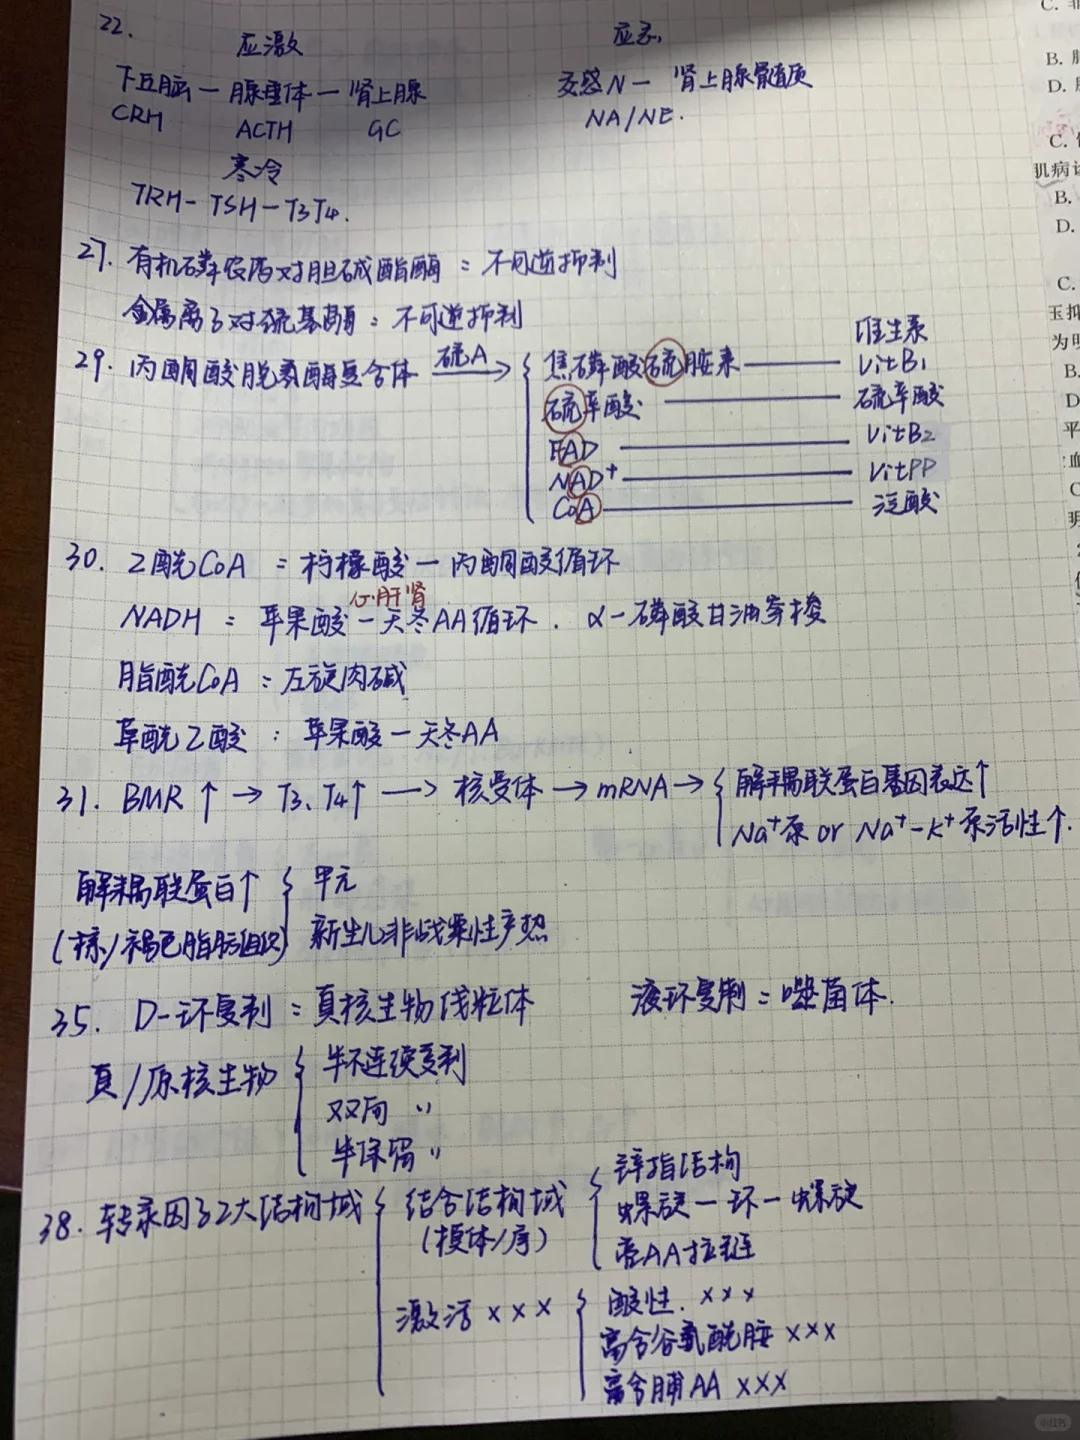 22.
应激
应急
下丘脑 — 腺垂体 — 肾上腺
交感N — 肾上腺髓质
CRH ACTH GC
NA/NE.
寒冷
TRH - TSH - T3T4.
27. 有机磷农药对胆碱酯酶 = 不可逆抑制
金属离子对巯基酶 = 不可逆抑制
维生素
29. 丙酮酸脱氢酶复合体 硫A → { 焦磷酸硫胺素 —— VitB1
硫辛酸 —— 硫辛酸
FAD —— VitB2
NAD+ —— VitPP
CoA —— 泛酸
30. 乙酰CoA = 柠檬酸 — 丙酮酸循环
心肝肾
NADH = 苹果酸 — 天冬AA循环. α-磷酸甘油穿梭
脂酰CoA = 左旋肉碱
草酰乙酸 : 苹果酸 — 天冬AA
31. BMR ↑ → T3、T4↑ → 核受体 → mRNA → { 解耦联蛋白基因表达↑
Na+泵 or Na+-K+泵活性↑.
解耦联蛋白↑ { 甲亢
(棕/褐色脂肪组织) 新生儿非战栗性产热
35. D-环复制 = 真核生物线粒体 滚环复制 = 噬菌体.
真/原核生物 { 半不连续复制
双向 〃
半保留 〃
38. 转录因子2大结构域 { 结合结构域 { 锌指结构
(模体/序) 螺旋-环-螺旋
亮AA拉链
激活××× { 酸性.×××
富含谷氨酰胺×××
富含脯AA ×××
C.
B.
D.
C.
肌病
B.
D.
C.
为
B.
D
平
血
C
小红书